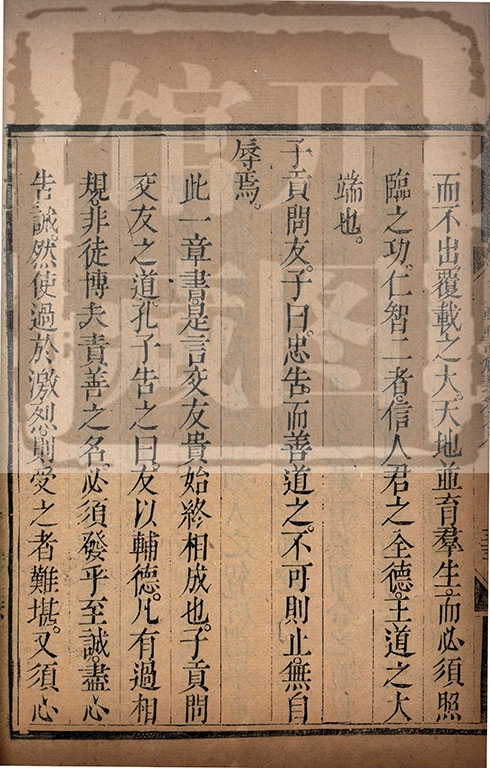 而不出覆載之大。天地並育羣生。而必須照
臨之功。仁智二者。信人君之全德。王道之大
端也。
子貢問友。子曰。忠告。而善道之。不可則止。無自
辱焉。
此一章書是言交友貴始終相成也。子貢問
交友之道。孔子告之曰。友以輔德。凡有過相
規。非徒博夫責善之名。必須發乎至誠。盡心
告誡。然使過於激烈則受之者難堪。又須心